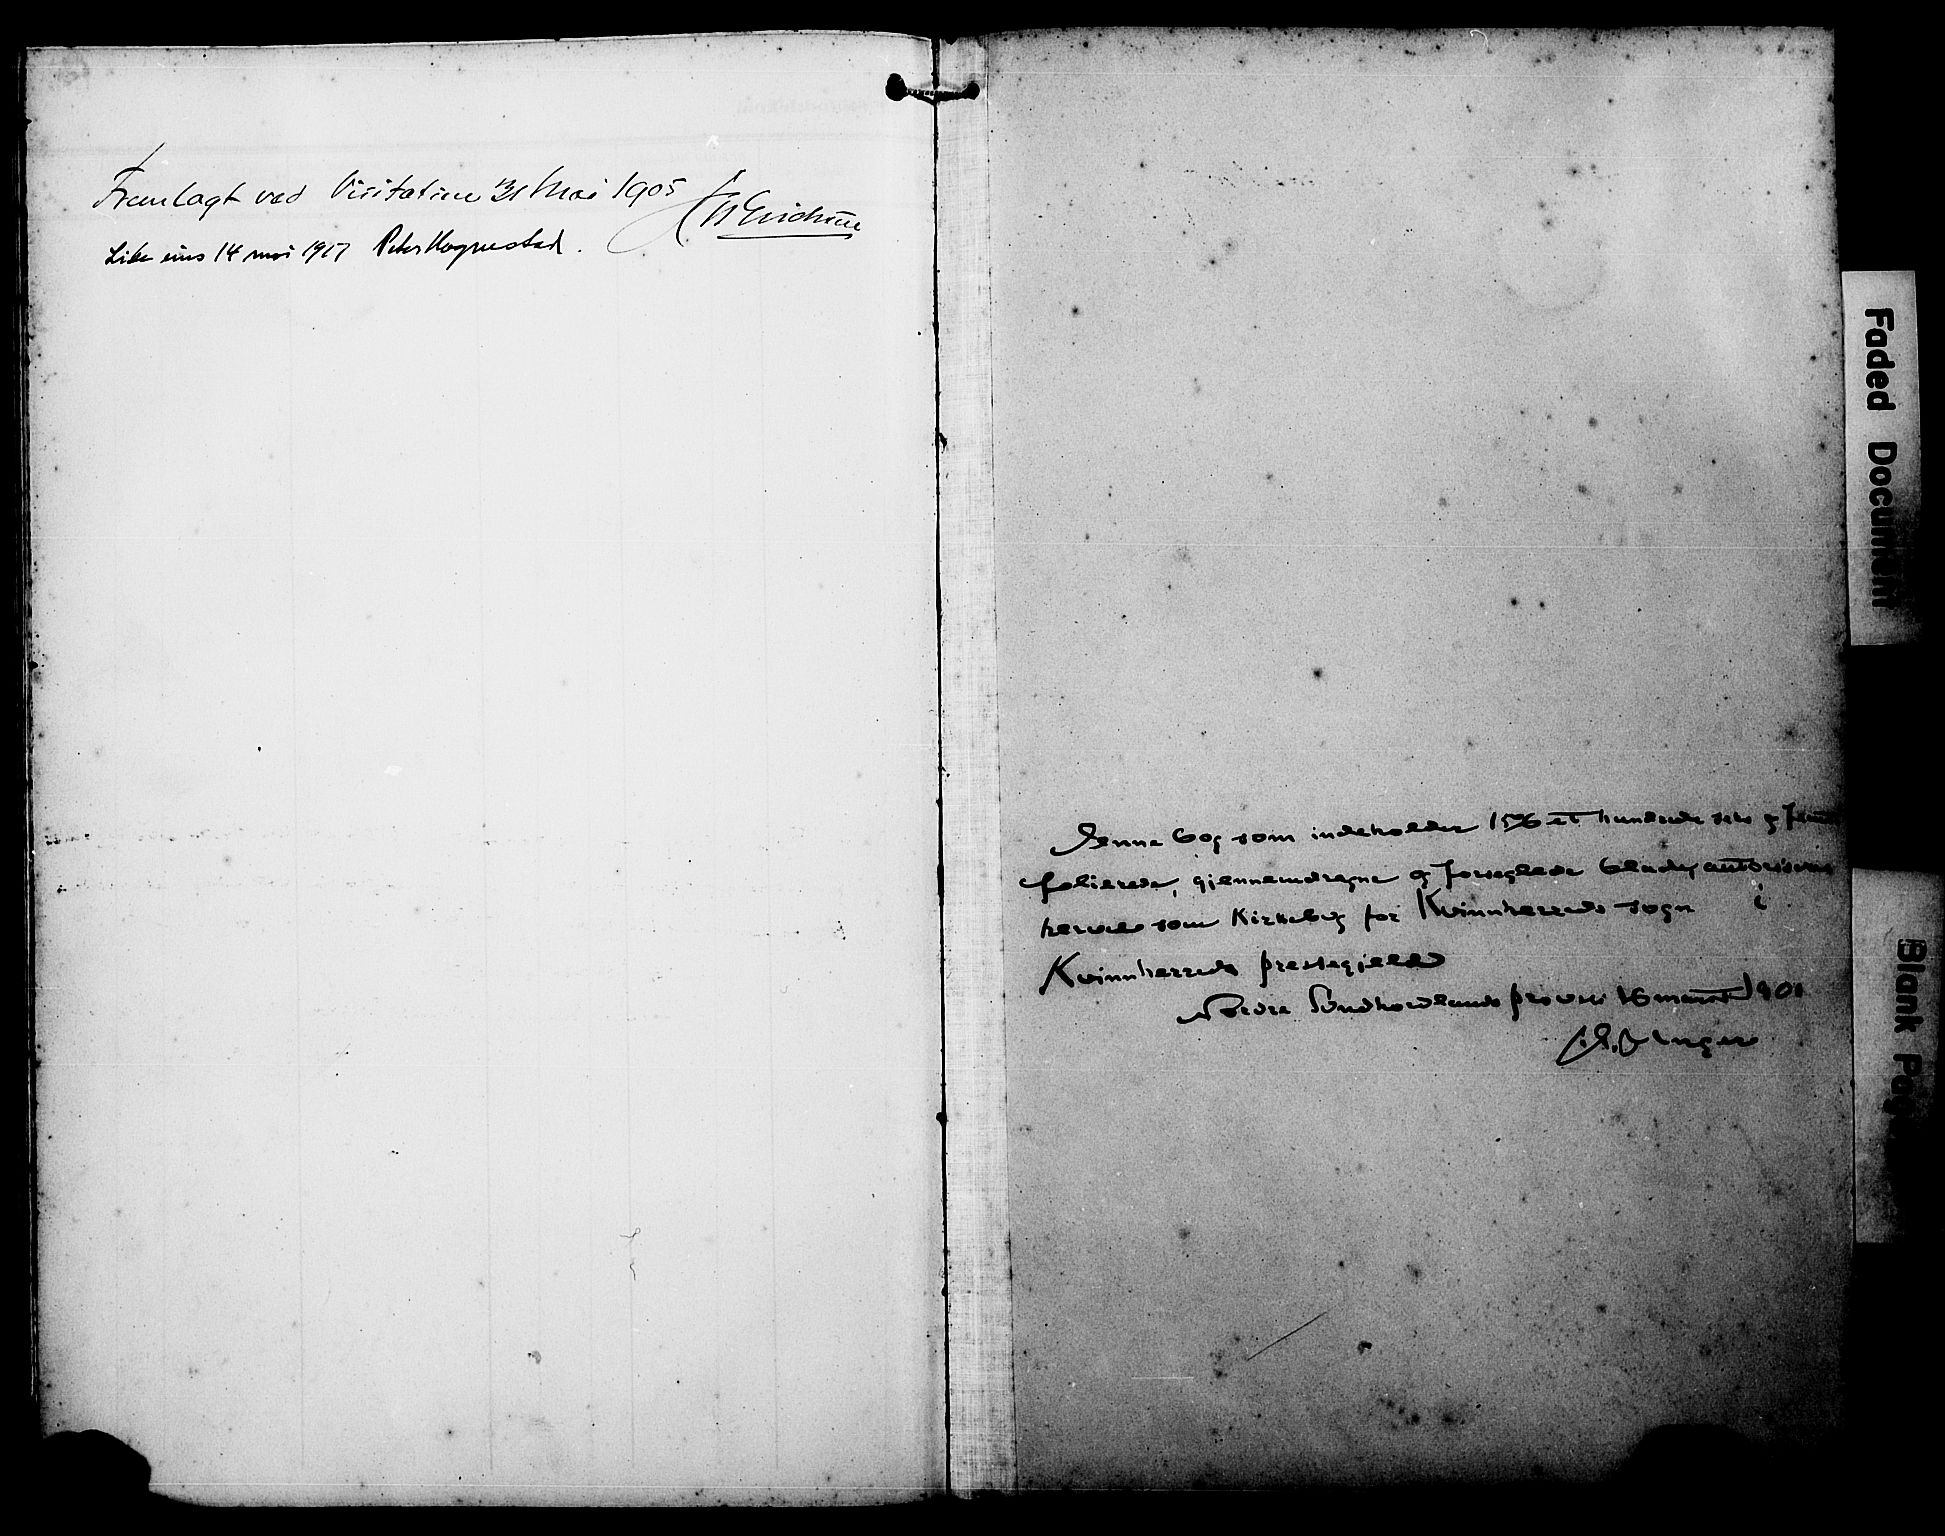 Fremlagt ved Visitatsen 31 Mai 1905 Erichsen
Like eins 14 mai 1917 Peter Hognestad.
Denne bog som indeholder 156 et hundrede seks og
folierede, gjennemdragne og forseglede blade, autoriseres
herved som Kirkebog for Kvinnherreds sogn i
Kvinnherreds prestegjeld
Nordre Søndhordlands provsti 16 marts 1901
Unger
Faded Document
Blank Pag